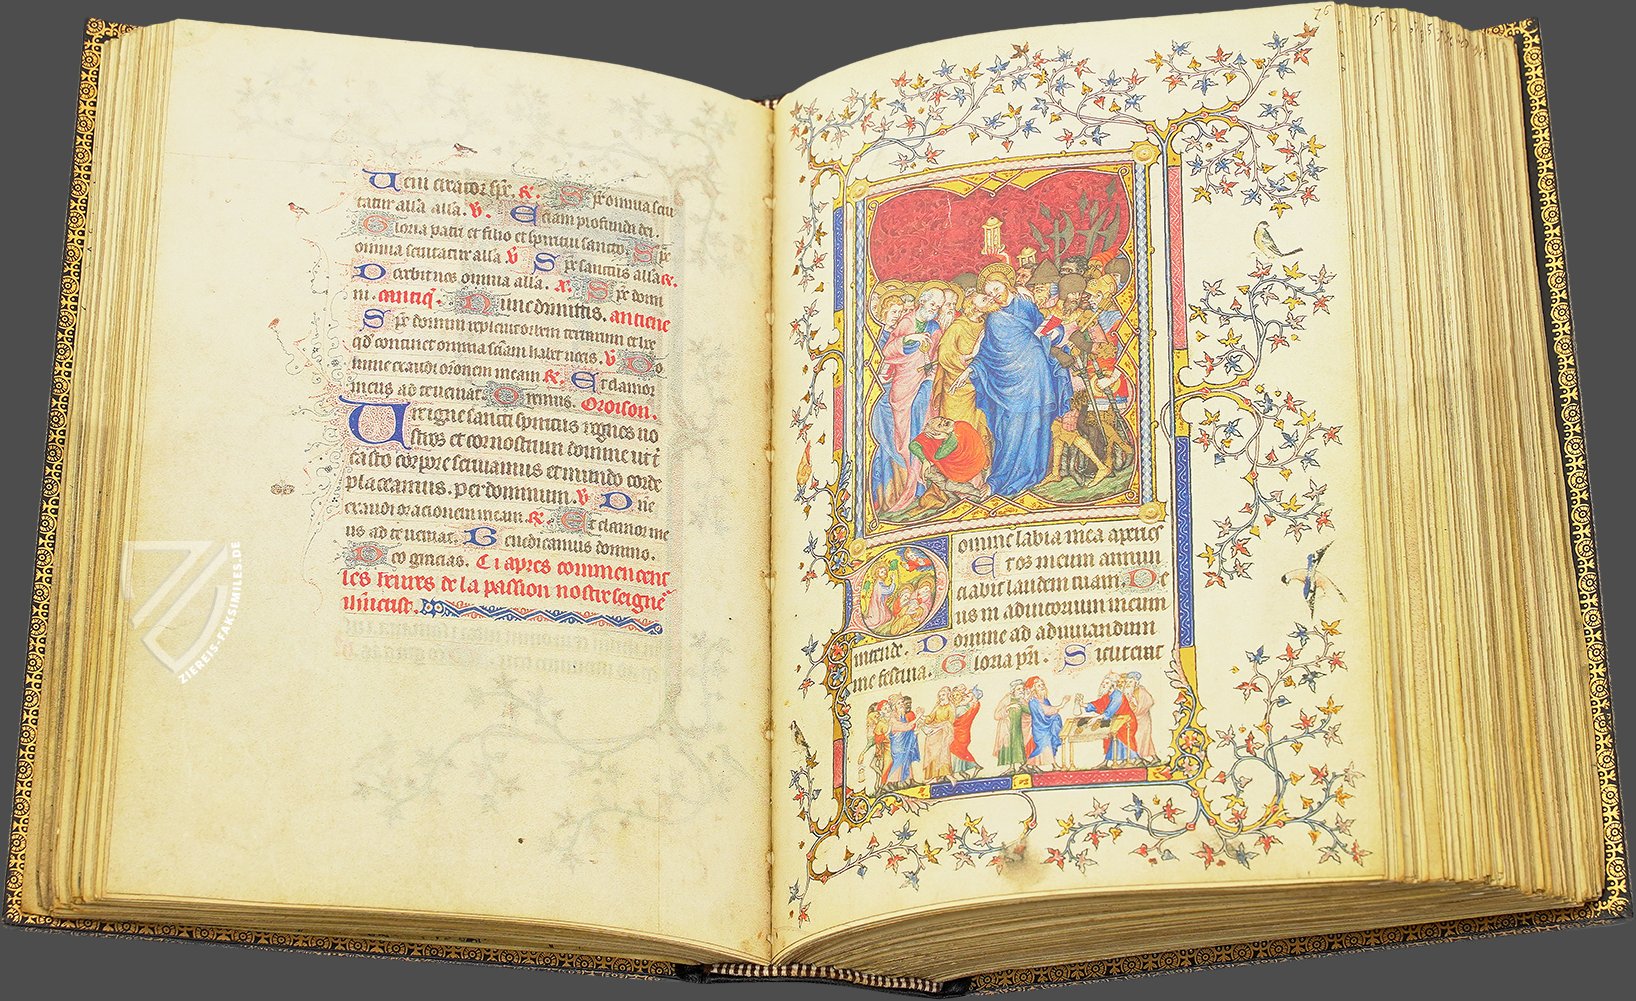 Veni creator spc. R. Spc omnia scru
tatur alla alla. V. Etiam profunda dei.
Gloria patri et filio et spiritui sancto. Spc
omnia scrutatur alla V Spc sanctus alla R.
Docebit nos omnia alla. A. Spc domi
ni. cantiq. Nunc dimittis. antiene
Spc domini replevit orbem terrarum et hoc
qd continet omnia sciam habet vocis. V Do
mine exaudi oronem meam R. Et clamor
meus ad te veniat. Oremus. Oroison.
Vre igne sancti spiritus renes no
stros et cor nostrum domine ut t
casto corpore serviamus et mundo corde
placeamus. per dominum. V Dne
exaudi orationem meam. R. Et clamor me
us ad te veniat. Benedicamus domino.
Deo gracias. Ci apres commencent
les heures de la passion nostre seigne
Domine labia mea aperies
Et os meum annun
ciabit laudem tuam. De
us in adiutorium meum
intende. Domine ad adiuvandum
me festina. Gloria pri. Sicut erat
76
ZIEREIS-FAKSIMILES.DE